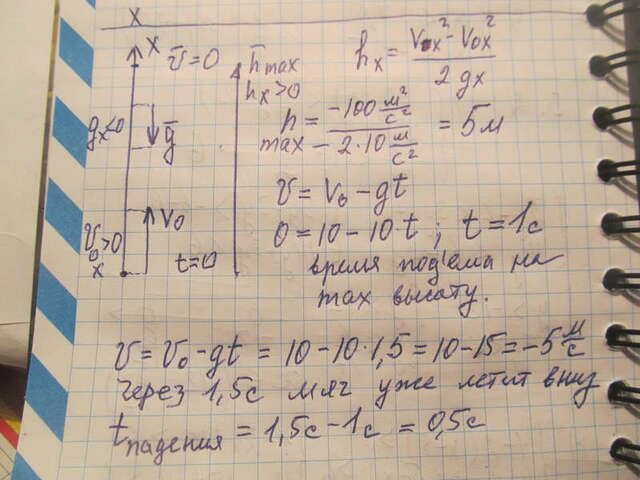 X
X v̄=0
gₓ<0 ḡ
v₀>0 V₀
x t=0
h̄max
hₓ>0
hₓ = (Vₓ² - V₀ₓ²) / 2gₓ
h max = (-100 м²/с²) / (-2·10 м/с²) = 5м
v = v₀ - gt
0 = 10 - 10·t ; t = 1с
время подъема на
max высату.
v = v₀ - gt = 10 - 10·1,5 = 10 - 15 = -5 м/с
Через 1,5с мяг уже летит вниз
t падения = 1,5с - 1с = 0,5с